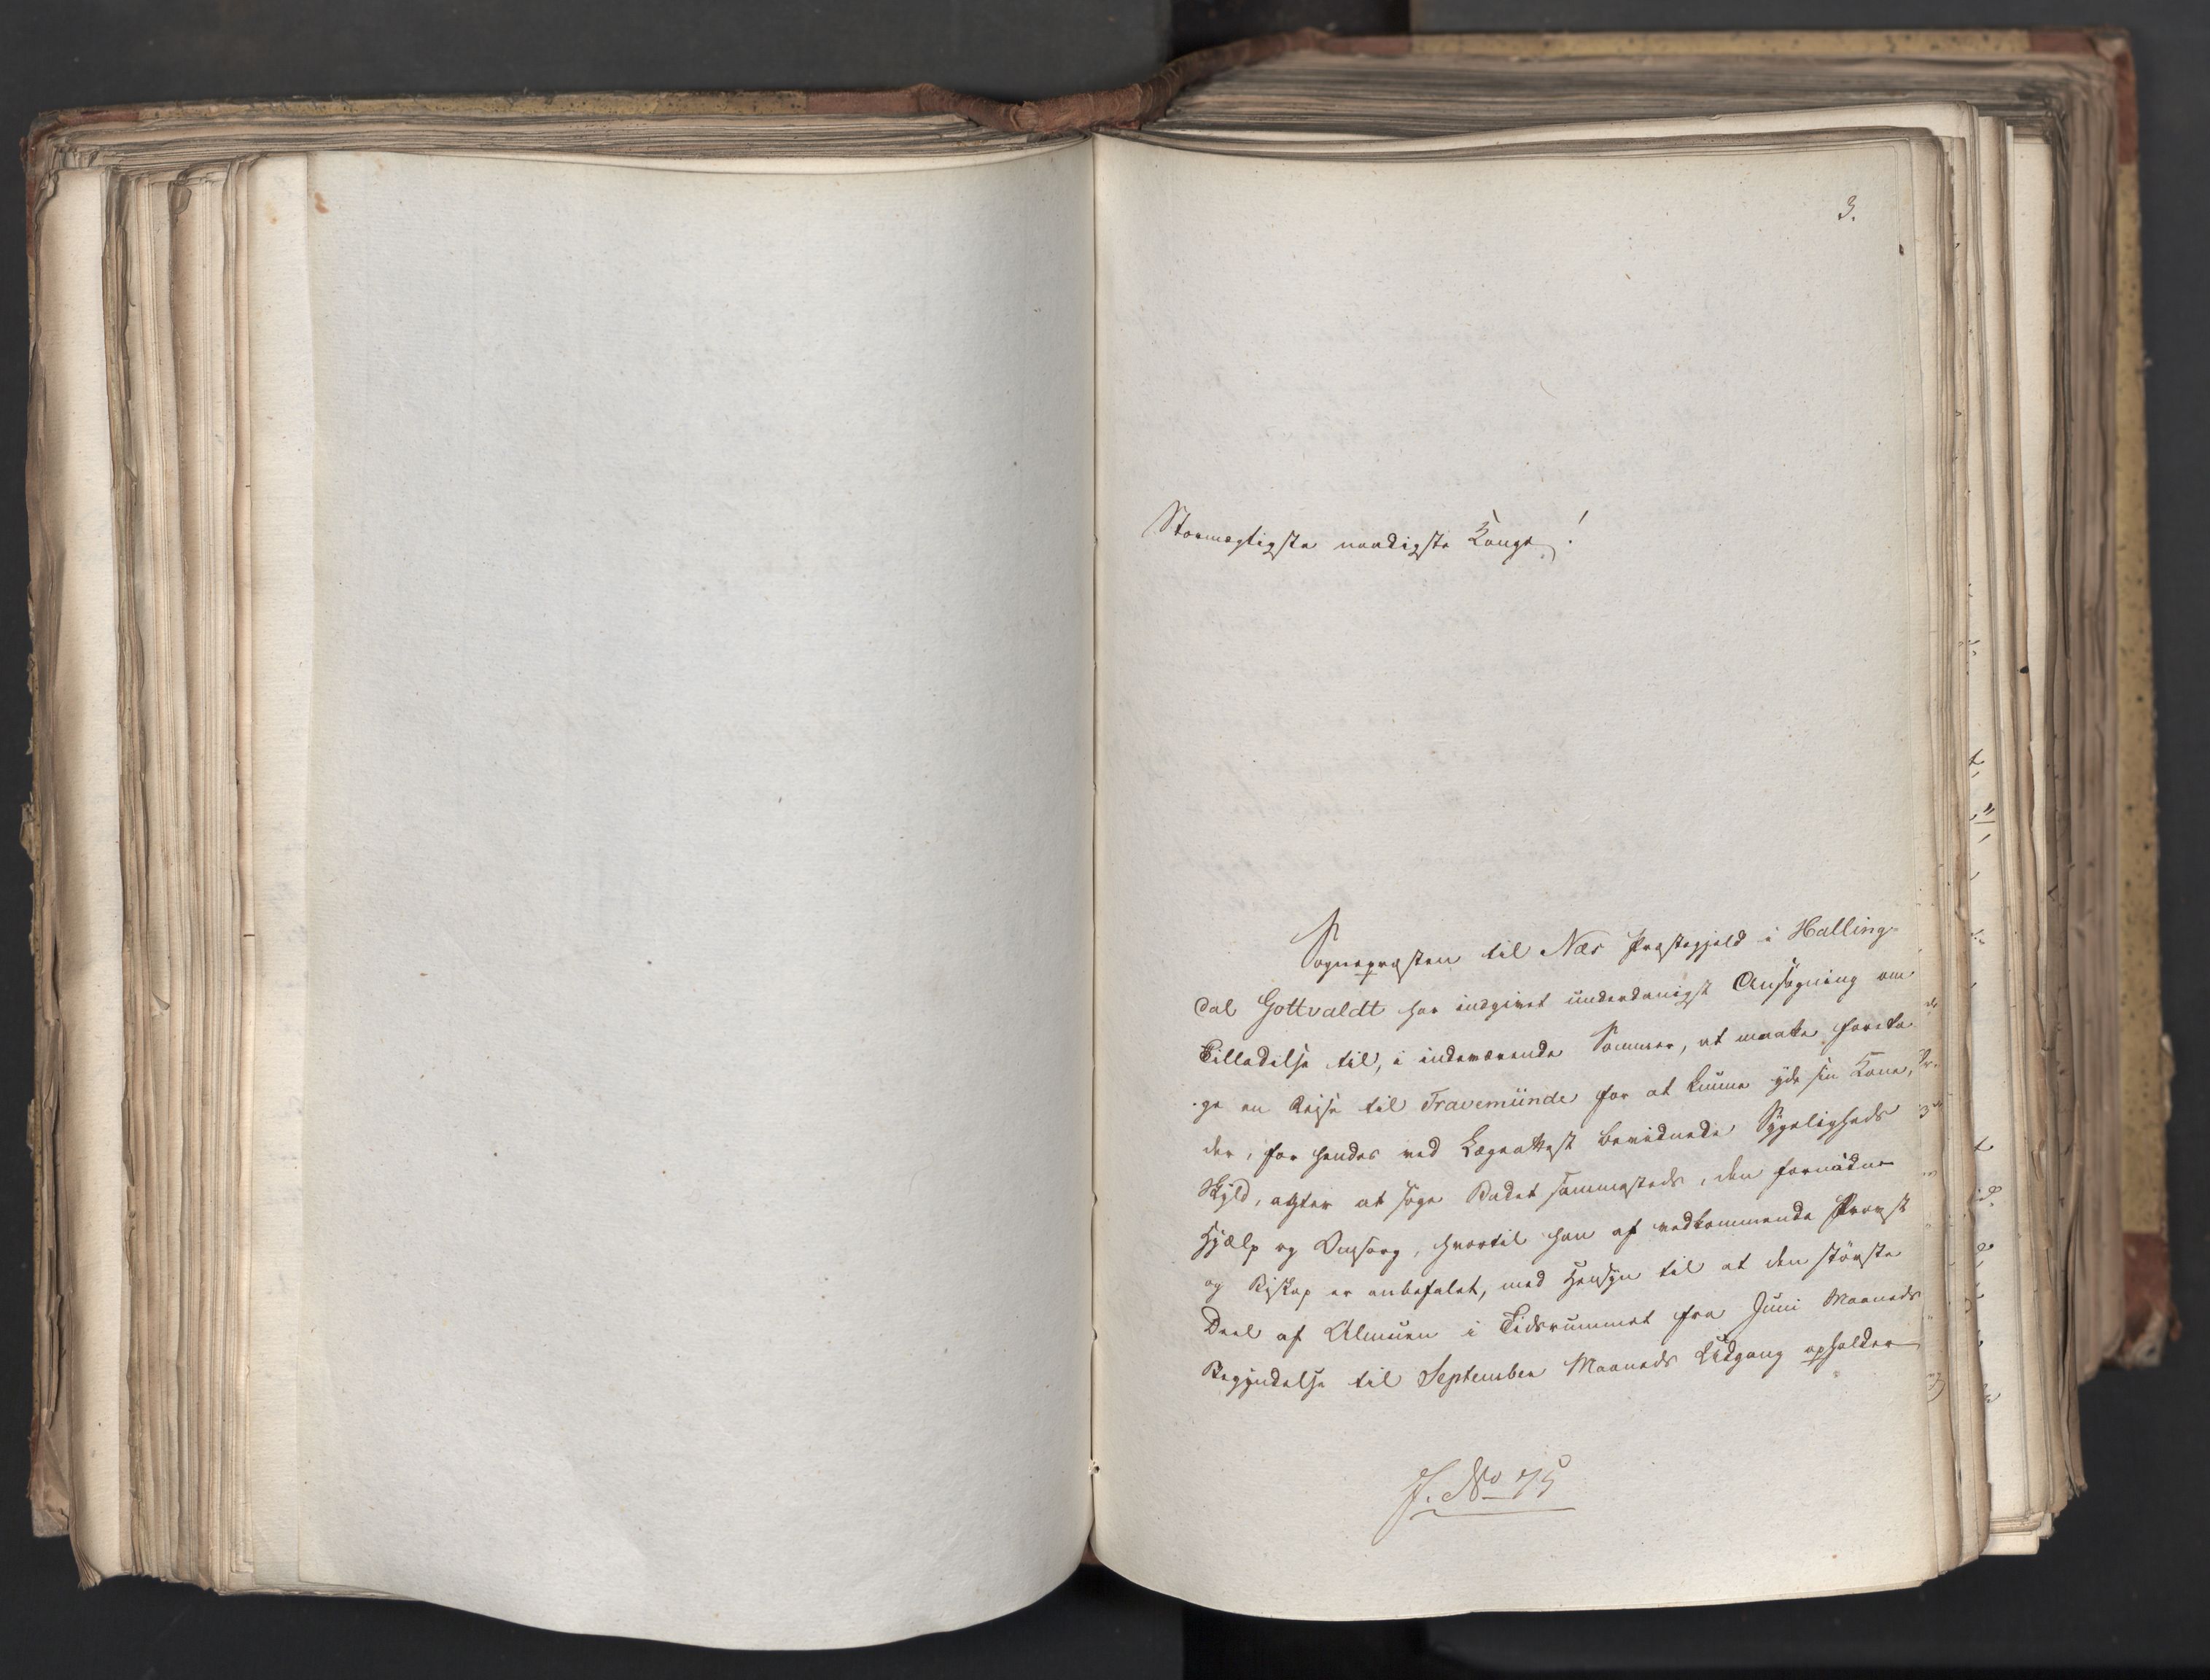 3.
Stormægtigste naadigste Konge!
Sognepræsten til Næs Præstegjeld i Halling-
dal Gottvaldt har indgivet underdanigst Ansøgning om
Tilladelse til, i indeværende Sommer, at maatte foreta-
ge en Rejse til Travemünde for at kunne yde sin Kone,
der, for hendes ved Lægeattest bevidnede Sygeligheds
Skyld, agter at søge Badet sammesteds, den fornødne
Hjælp og Omsorg, hvortil han af vedkommende Provst
og Biskop er anbefalet, med Hensyn til at den største
Deel af Almuen i Tidsrummet fra Juni Maaneds
Begyndelse til September Maaneds Udgang opholder
J. No 75